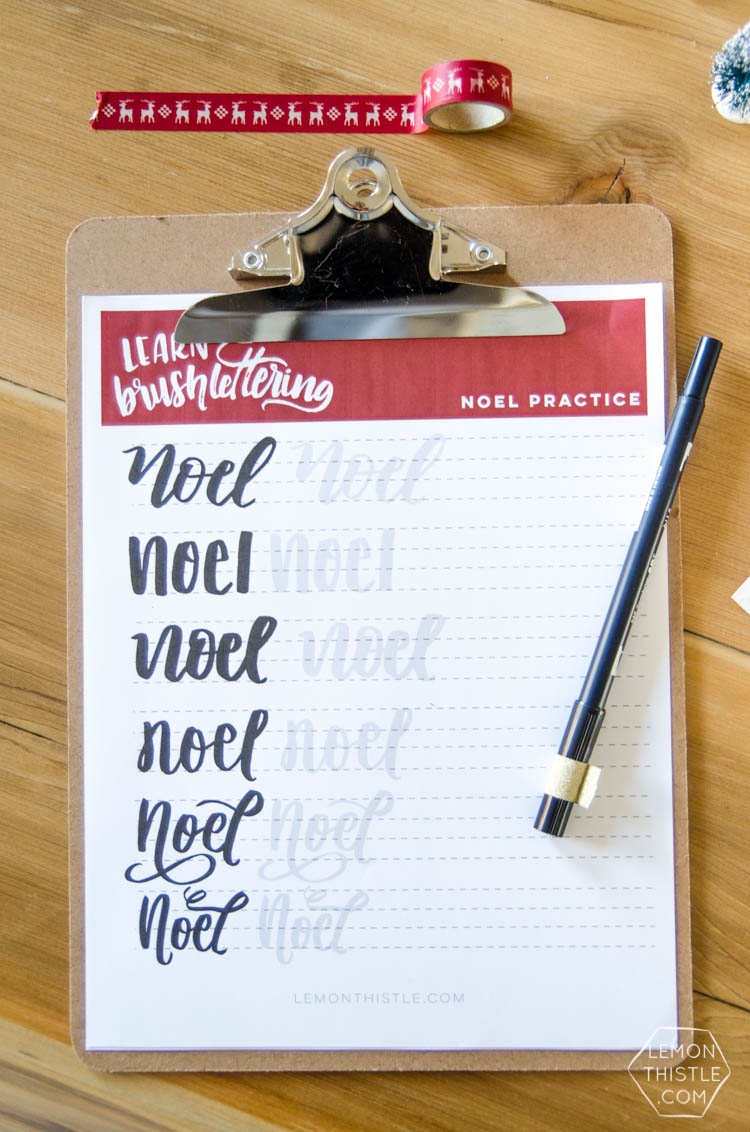 LEARN
brushlettering
NOEL PRACTICE
noel noel
noel noel
noel noel
noel noel
noel noel
noel noel
LEMONTHISTLE.COM
LEMON
THISTLE
.COM